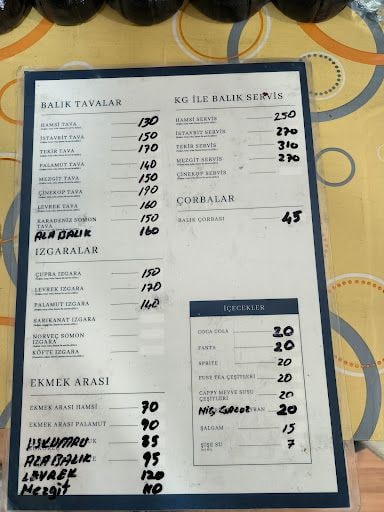 BALIK TAVALAR
HAMSİ TAVA 130
İSTAVRİT TAVA 150
TEKİR TAVA 170
PALAMUT TAVA 140
MEZGİT TAVA 150
ÇİNEKOP TAVA 190
LEVREK TAVA 160
KARADENİZ SOMON TAVA 150
ALABALIK 160
IZGARALAR
ÇUPRA IZGARA 150
LEVREK IZGARA 170
PALAMUT IZGARA 140
SARIKANAT IZGARA
NORVEÇ SOMON IZGARA
KÖFTE IZGARA
EKMEK ARASI
EKMEK ARASI HAMSİ 70
EKMEK ARASI PALAMUT 90
USKUMRU 85
ALABALIK 95
LEVREK 120
Mezgit 110
KG İLE BALIK SERVİS
HAMSİ SERVİS 250
İSTAVRİT SERVİS 270
TEKİR SERVİS 310
MEZGİT SERVİS 270
ÇİNEKOP SERVİS
ÇORBALAR
BALIK ÇORBASI 45
İÇECEKLER
COCA COLA 20
FANTA 20
SPRİTE 20
FUSE TEA ÇEŞİTLERİ 20
CAPPY MEYVE SUSU ÇEŞİTLERİ 20
20
ŞALGAM 15
ŞİŞE SU 7